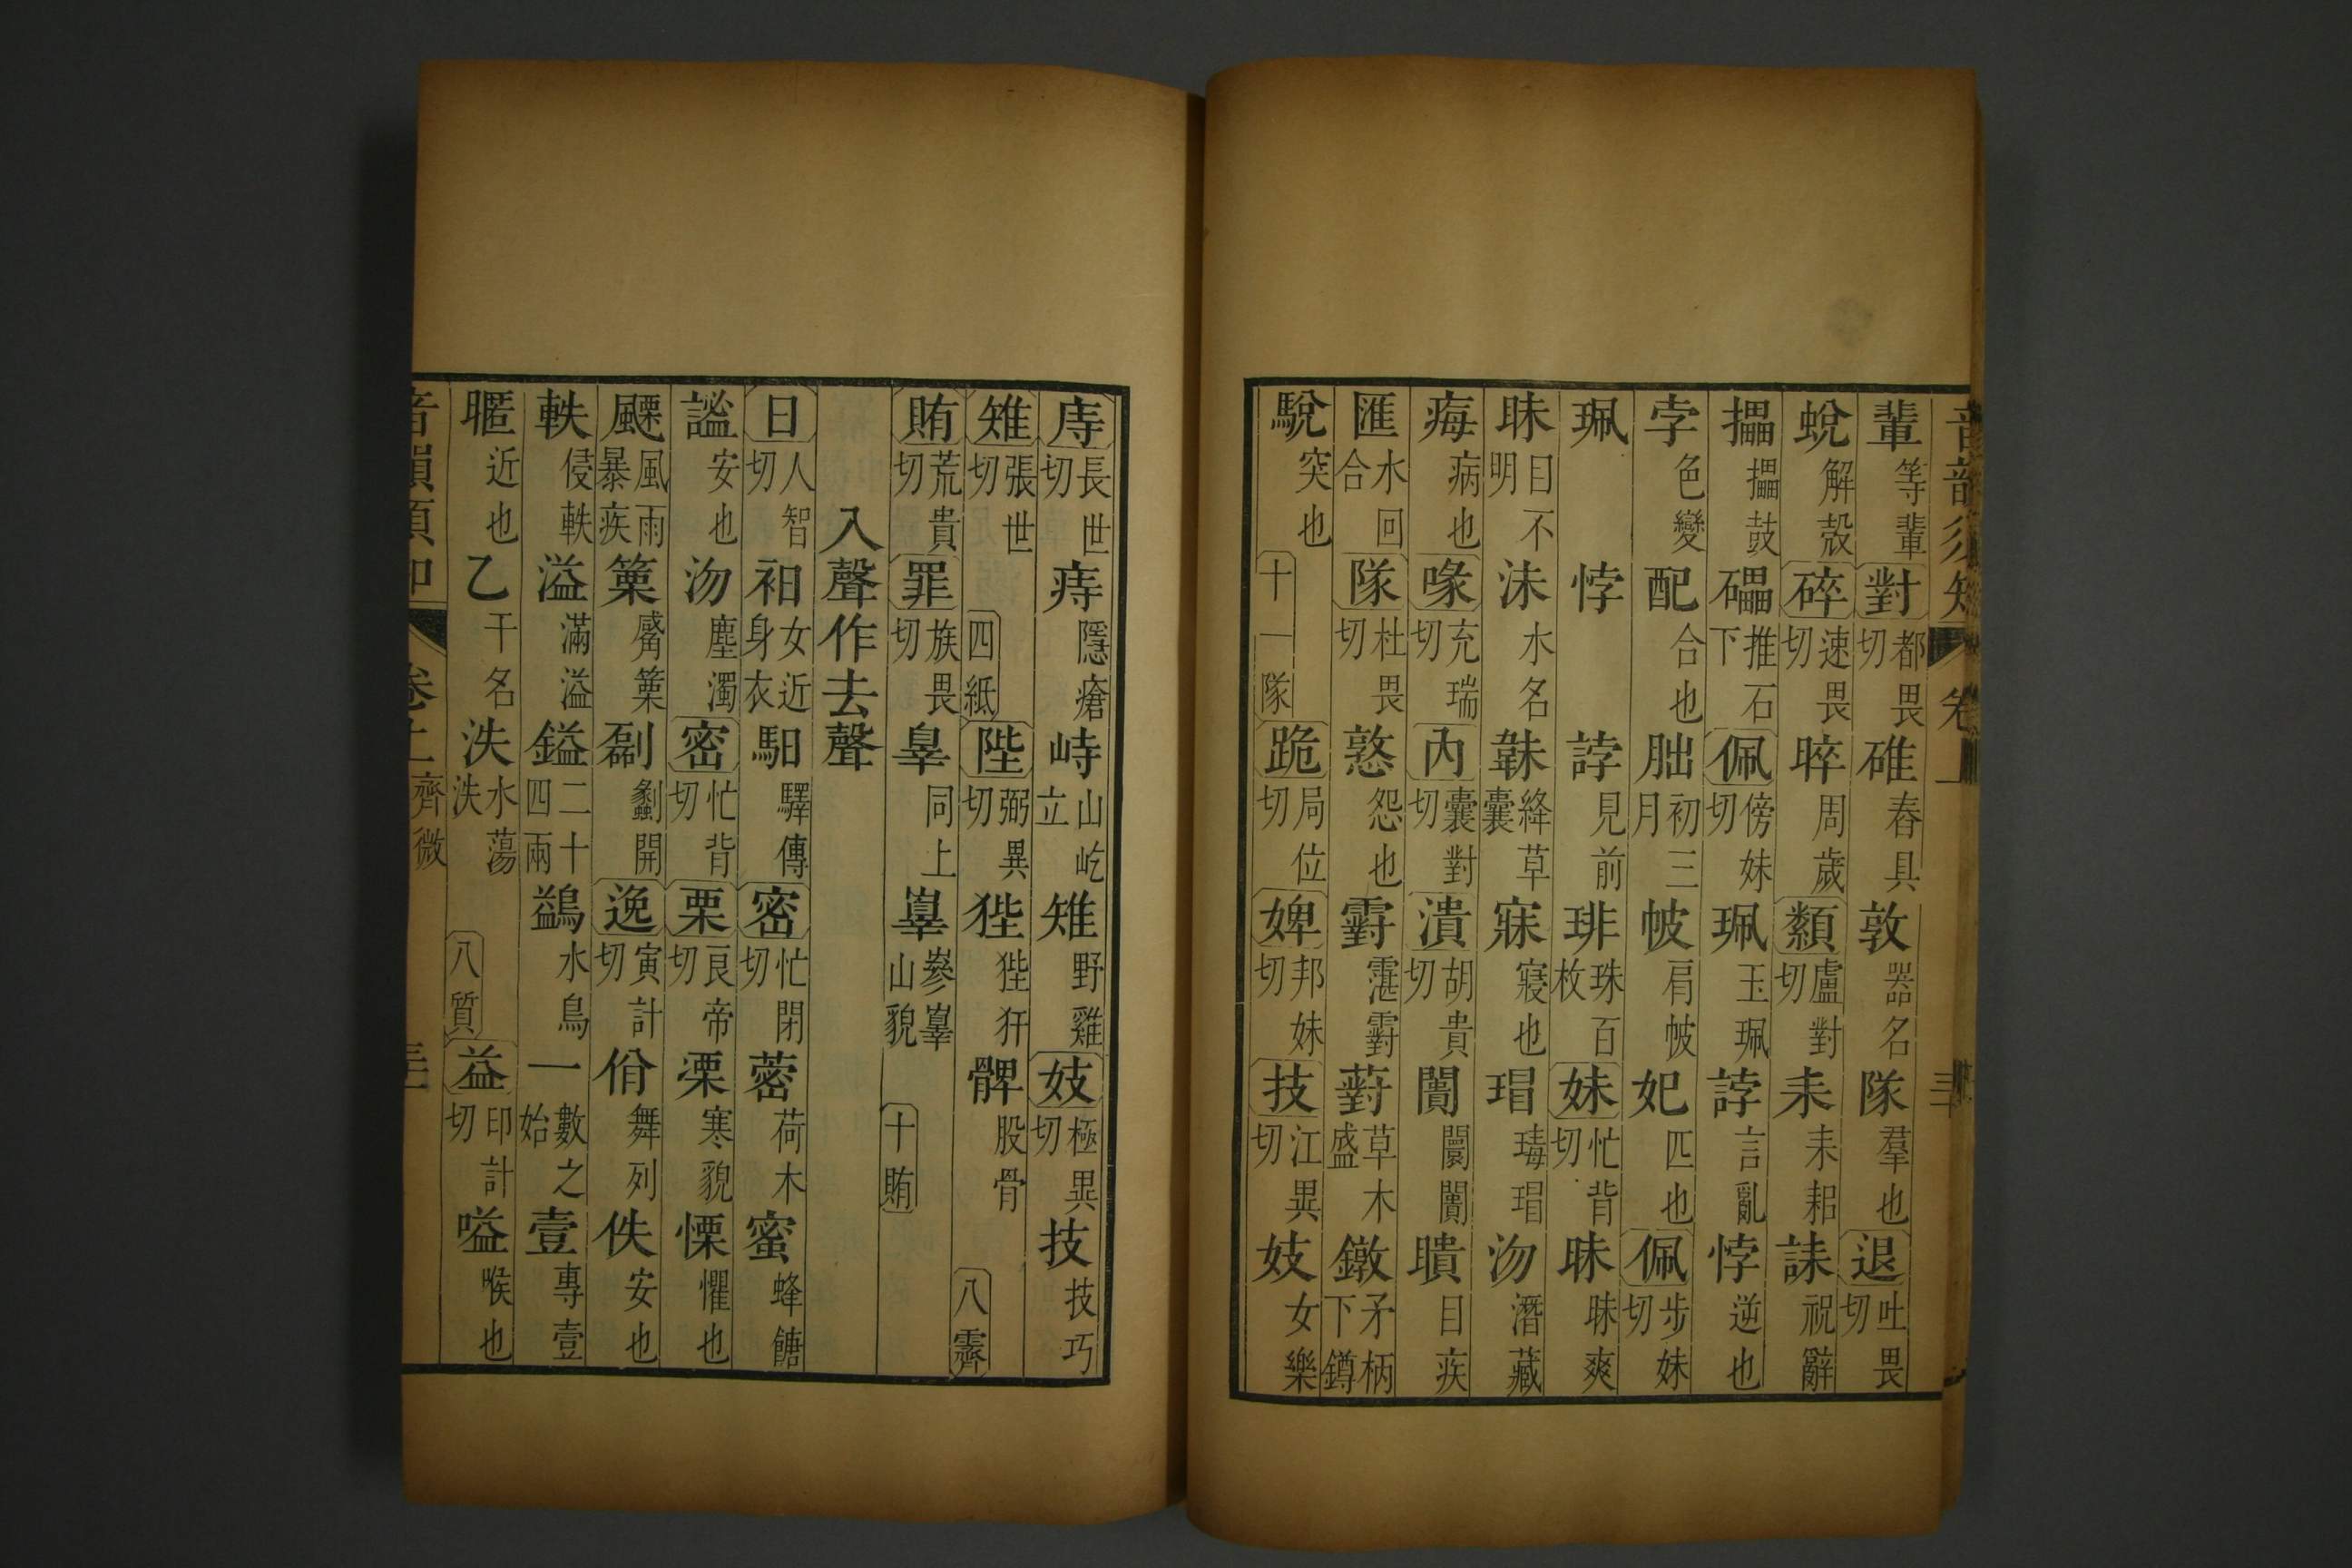 輩等輩對都畏切碓舂具敦器名隊羣也退吐畏切
蛻解殼碎速畏切晬周歲纇盧對切耒耒耜誄祝辭
攂攂鼓礧推石下佩傍妹切珮玉珮誖言亂悖逆也
孛色變配合也朏初三月帔肩帔妃匹也佩步妹切
珮悖誖見前琲珠百枚妹忙背切昧昧爽
眛目不明沬水名韎絳草囊寐寢也瑁瑇瑁沕潛藏
痗病也喙充瑞切內囊對切潰胡貴切闠闤闠瞶目疾
匯水回合隊杜畏切憝怨也霨霮霨薱草木盛鐓矛柄下鐏
駾突也十一隊跪局位切婢邦妹切技江異切妓女樂
庤長世切痔隱瘡峙山屹立雉野雞妓極異切技技巧
雉張世切四紙陛弼異切狴狴犴髀股骨八霽
賄荒貴切罪族畏切辠同上嶵嵾嶵山貌十賄
入聲作去聲
日人智切衵女近身衣馹驛傳密忙閉切蔤荷木蜜蜂餹
謐安也沕塵濁密忙背切栗良帝切溧寒貌慄懼也
飋風雨暴疾篥觱篥劙蠡開逸寅計切佾舞列佚安也
軼侵軼溢滿溢鎰二十四兩鷁水鳥一數之始壹專壹
暱近也乙干名泆水蕩泆八質益印計切嗌喉也